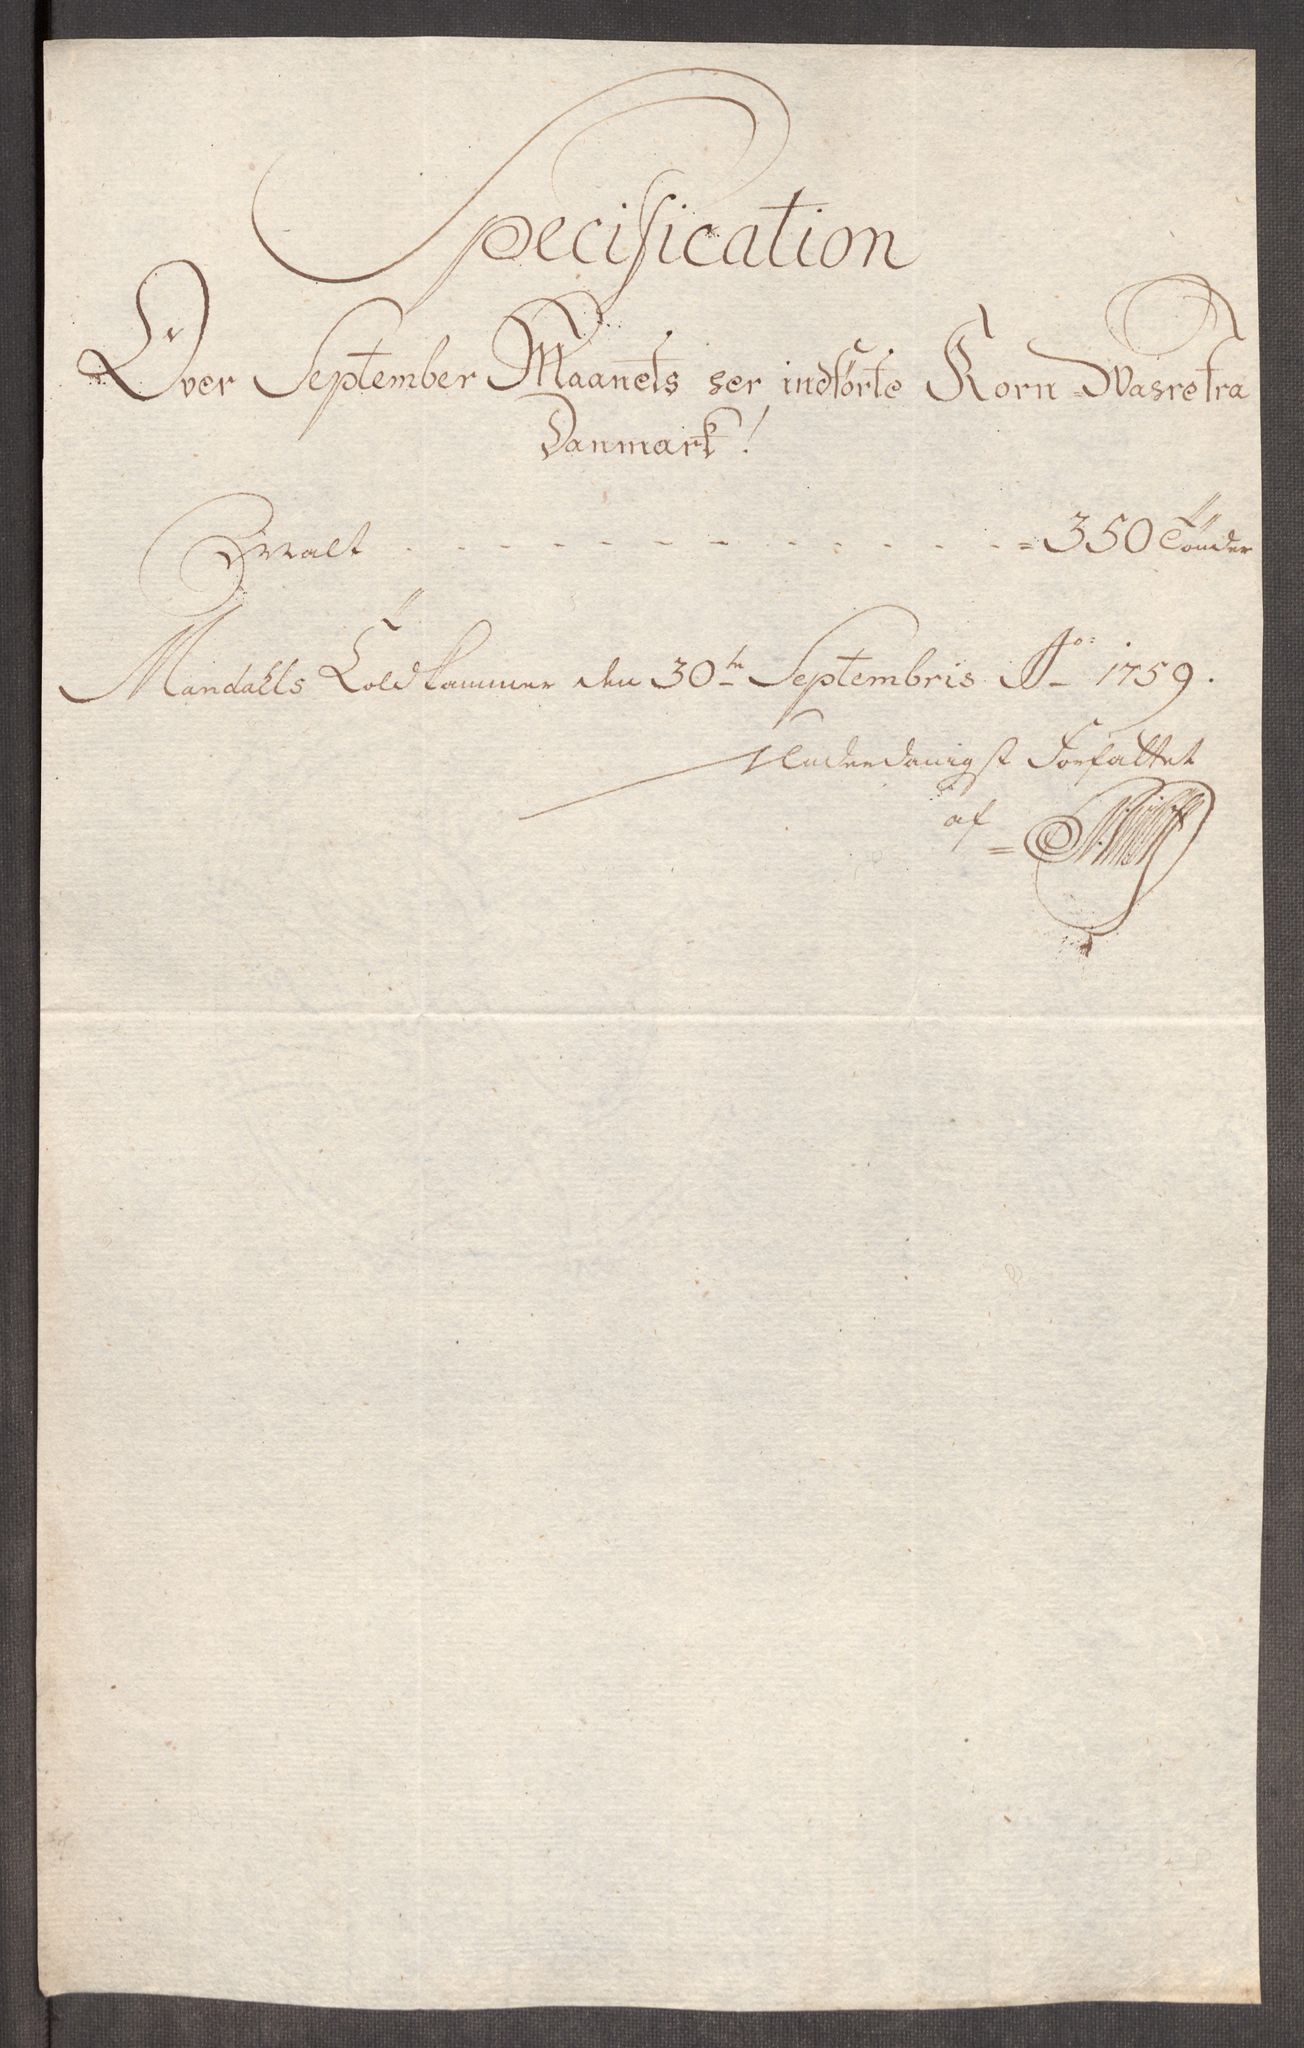 Specification
Over September Maanets her indførte Korn-Vahre fra
Danmark!
Malt . - - - - - - - - - - - - = 350 Tönder
Mandahls Toldkammer den 30te Septembris Ao: 1759.
Underdanigst Forfattet
af =